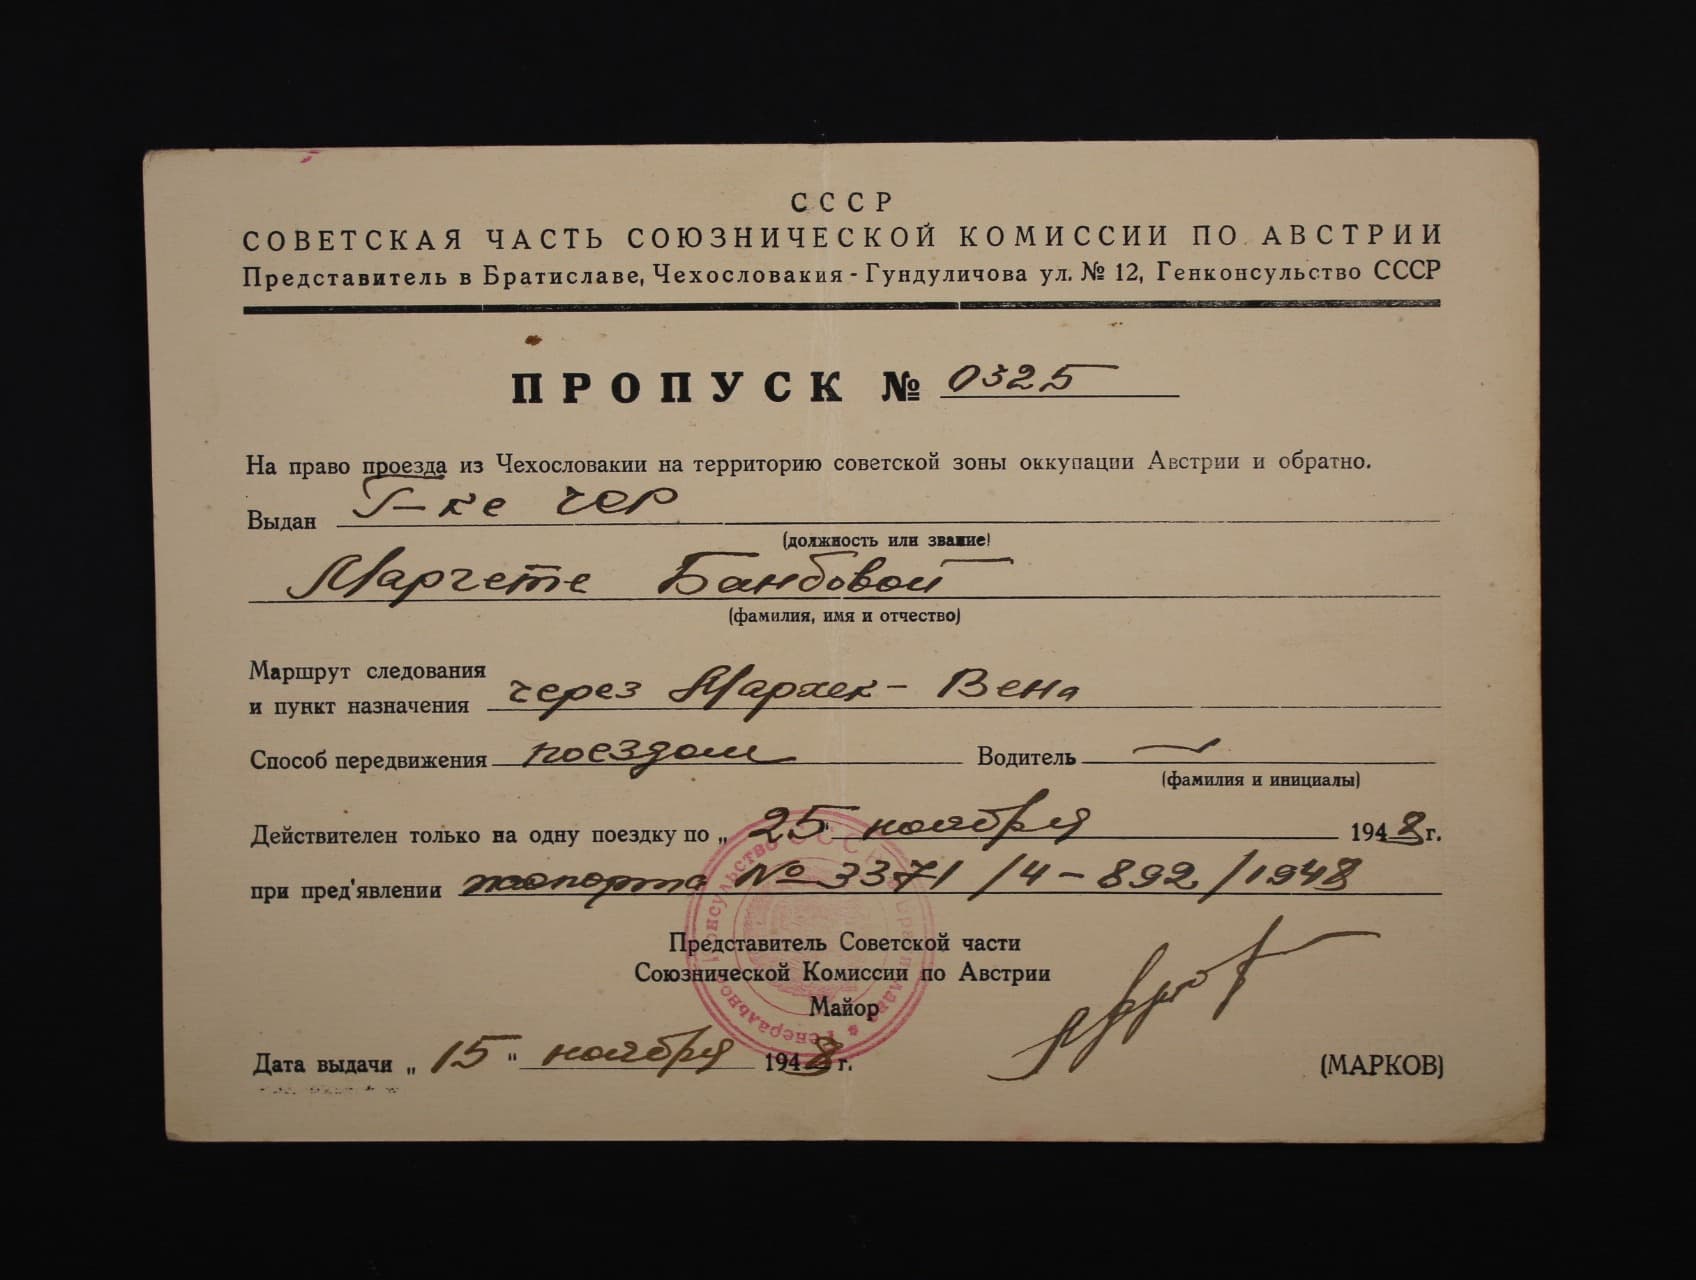 СССР
СОВЕТСКАЯ ЧАСТЬ СОЮЗНИЧЕСКОЙ КОМИССИИ ПО АВСТРИИ
Представитель в Братиславе, Чехословакия - Гундуличова ул. № 12, Генконсульство СССР
ПРОПУСК № 0325
На право проезда из Чехословакии на территорию советской зоны оккупации Австрии и обратно.
Выдан Г-ке ЧСР
(должность или звание)
Маргете Банбовой
(фамилия, имя и отчество)
Маршрут следования
и пункт назначения через Мархек - Вена
Способ передвижения поездом Водитель —
(фамилия и инициалы)
Действителен только на одну поездку по „ 25 " ноября 1948 г.
при пред'явлении паспорта № 3371/4-892/1948
Представитель Советской части
Союзнической Комиссии по Австрии
Майор
Дата выдачи „ 15 " ноября 1948 г.
(МАРКОВ)